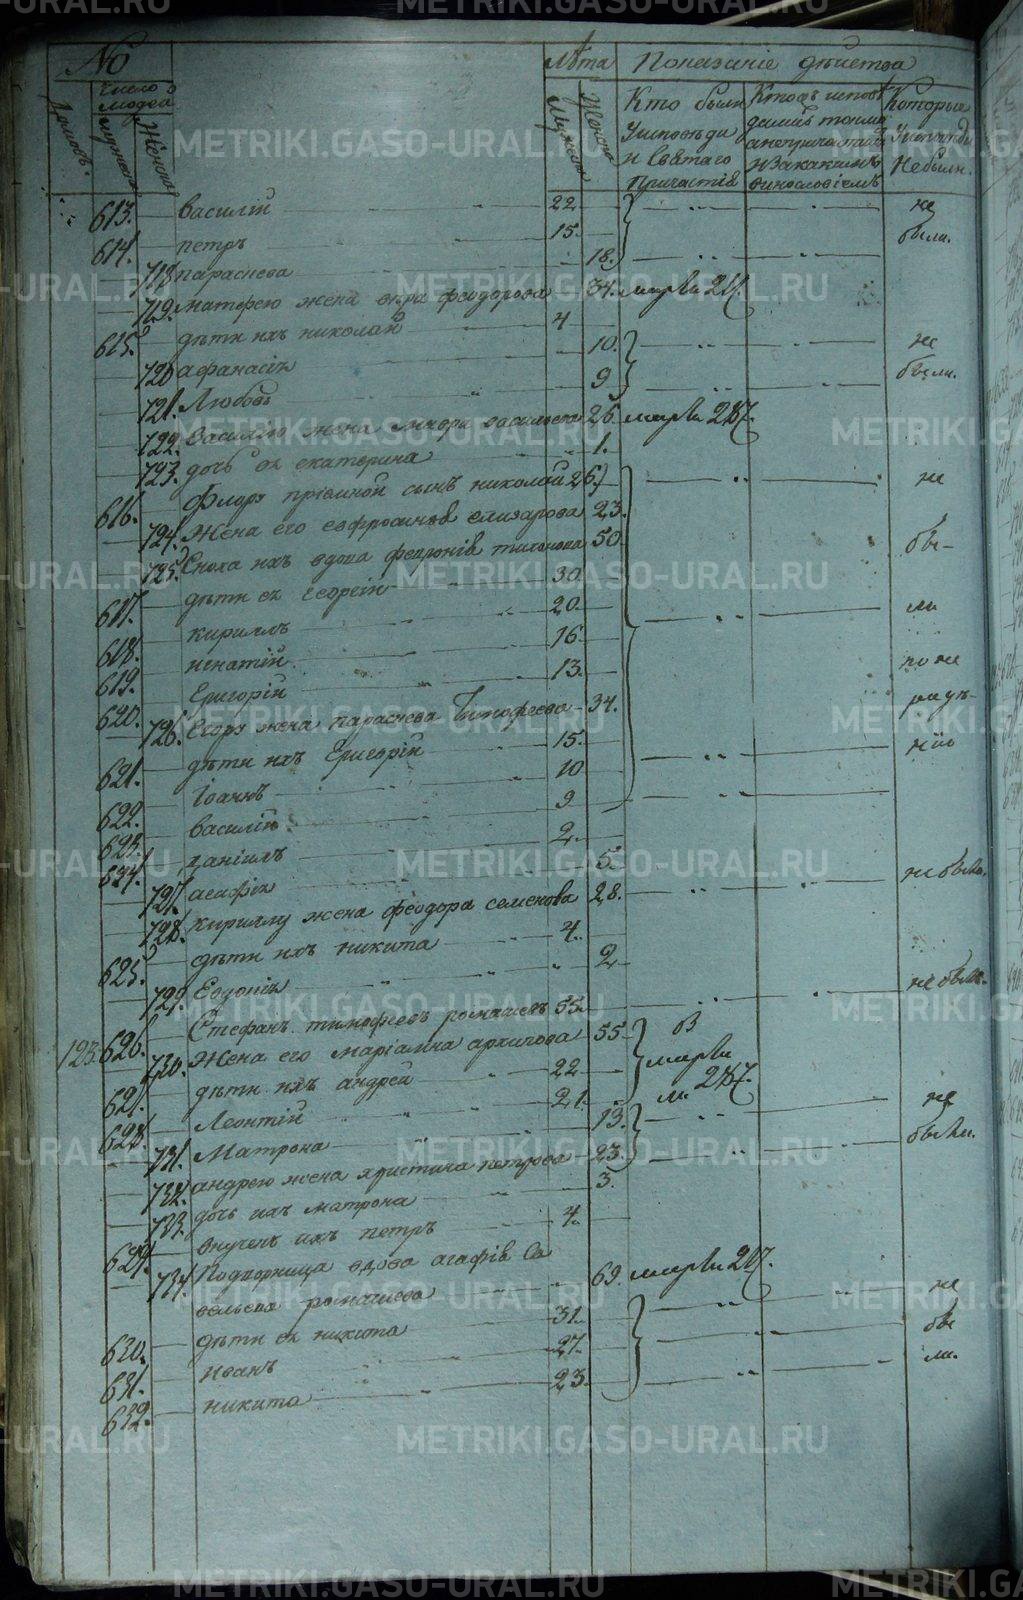 № Лѣта Показаніе дѣйства
Число людей
Домовъ. мужеска Женска Мужеска Женска
Кто были У исповѣди и Святаго Причастія
Которые У исповѣди Не были.
613. василій 22 не
614. петръ 15. были.
718. параскева 18.
719. жена феодорова 34. марта 21.
615. дѣти ихъ николай 4
720 афанасія 10. не
721. Любовь 9 были.
722. василью жена васильева 26 марта 27.
723. дочь ея екатерина 1.
616. Флора пріемной сынъ николай 26 не
724. Жена его евфросинья елизарова 23.
725. Сноха ихъ вдова февронія тихонова 50. бы-
617. дѣти ея Георгій 30
618. кириллъ 20. ли
619. игнатій 16
620. Григорій 13. по не
726. Егора жена параскева Тимофеева 34. радѣ-
621. дѣти ихъ Григорій 15. нію
622. Іоаннъ 10
623. василій 9
624. даніилъ 2
727. агафія 5 не были.
728. кириллу жена феодора семенова 28.
625. дѣти ихъ никита 4.
729. Евдокія 2 не были.
123. 626. Стефанъ тимофеевъ ромашевъ 55.
730. Жена его маріамна архипова 55 В
627. дѣти ихъ андрей 22 марта
628. Леонтій 21. 27. не
731. Матрона 13. были.
732. андрею жена христина петрова 23.
733. дочь ихъ матрона 3.
629. внучекъ ихъ петръ 4.
734. Подворница вдова агафія Са
вельева ромашева 69. марта 27. не
630. дѣти ея никита 31. бы
631. иванъ 27. ли.
632. никита 23.
METRIKI.GASO-URAL.RU